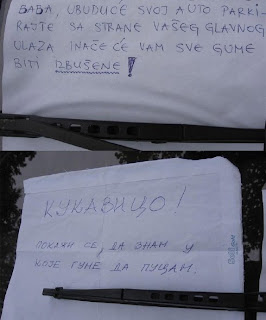 BABA, UBUDUĆE SVOJ AUTO PARKI-
RAJTE SA STRANE VAŠEG GLAVNOG
ULAZA INAČE ĆE VAM SVE GUME
BITI IZBUŠENE!
КУКАВИЦО!
ПОКАЖИ СЕ, ДА ЗНАМ У
КОЈЕ ГУМЕ ДА ПУЦАМ.